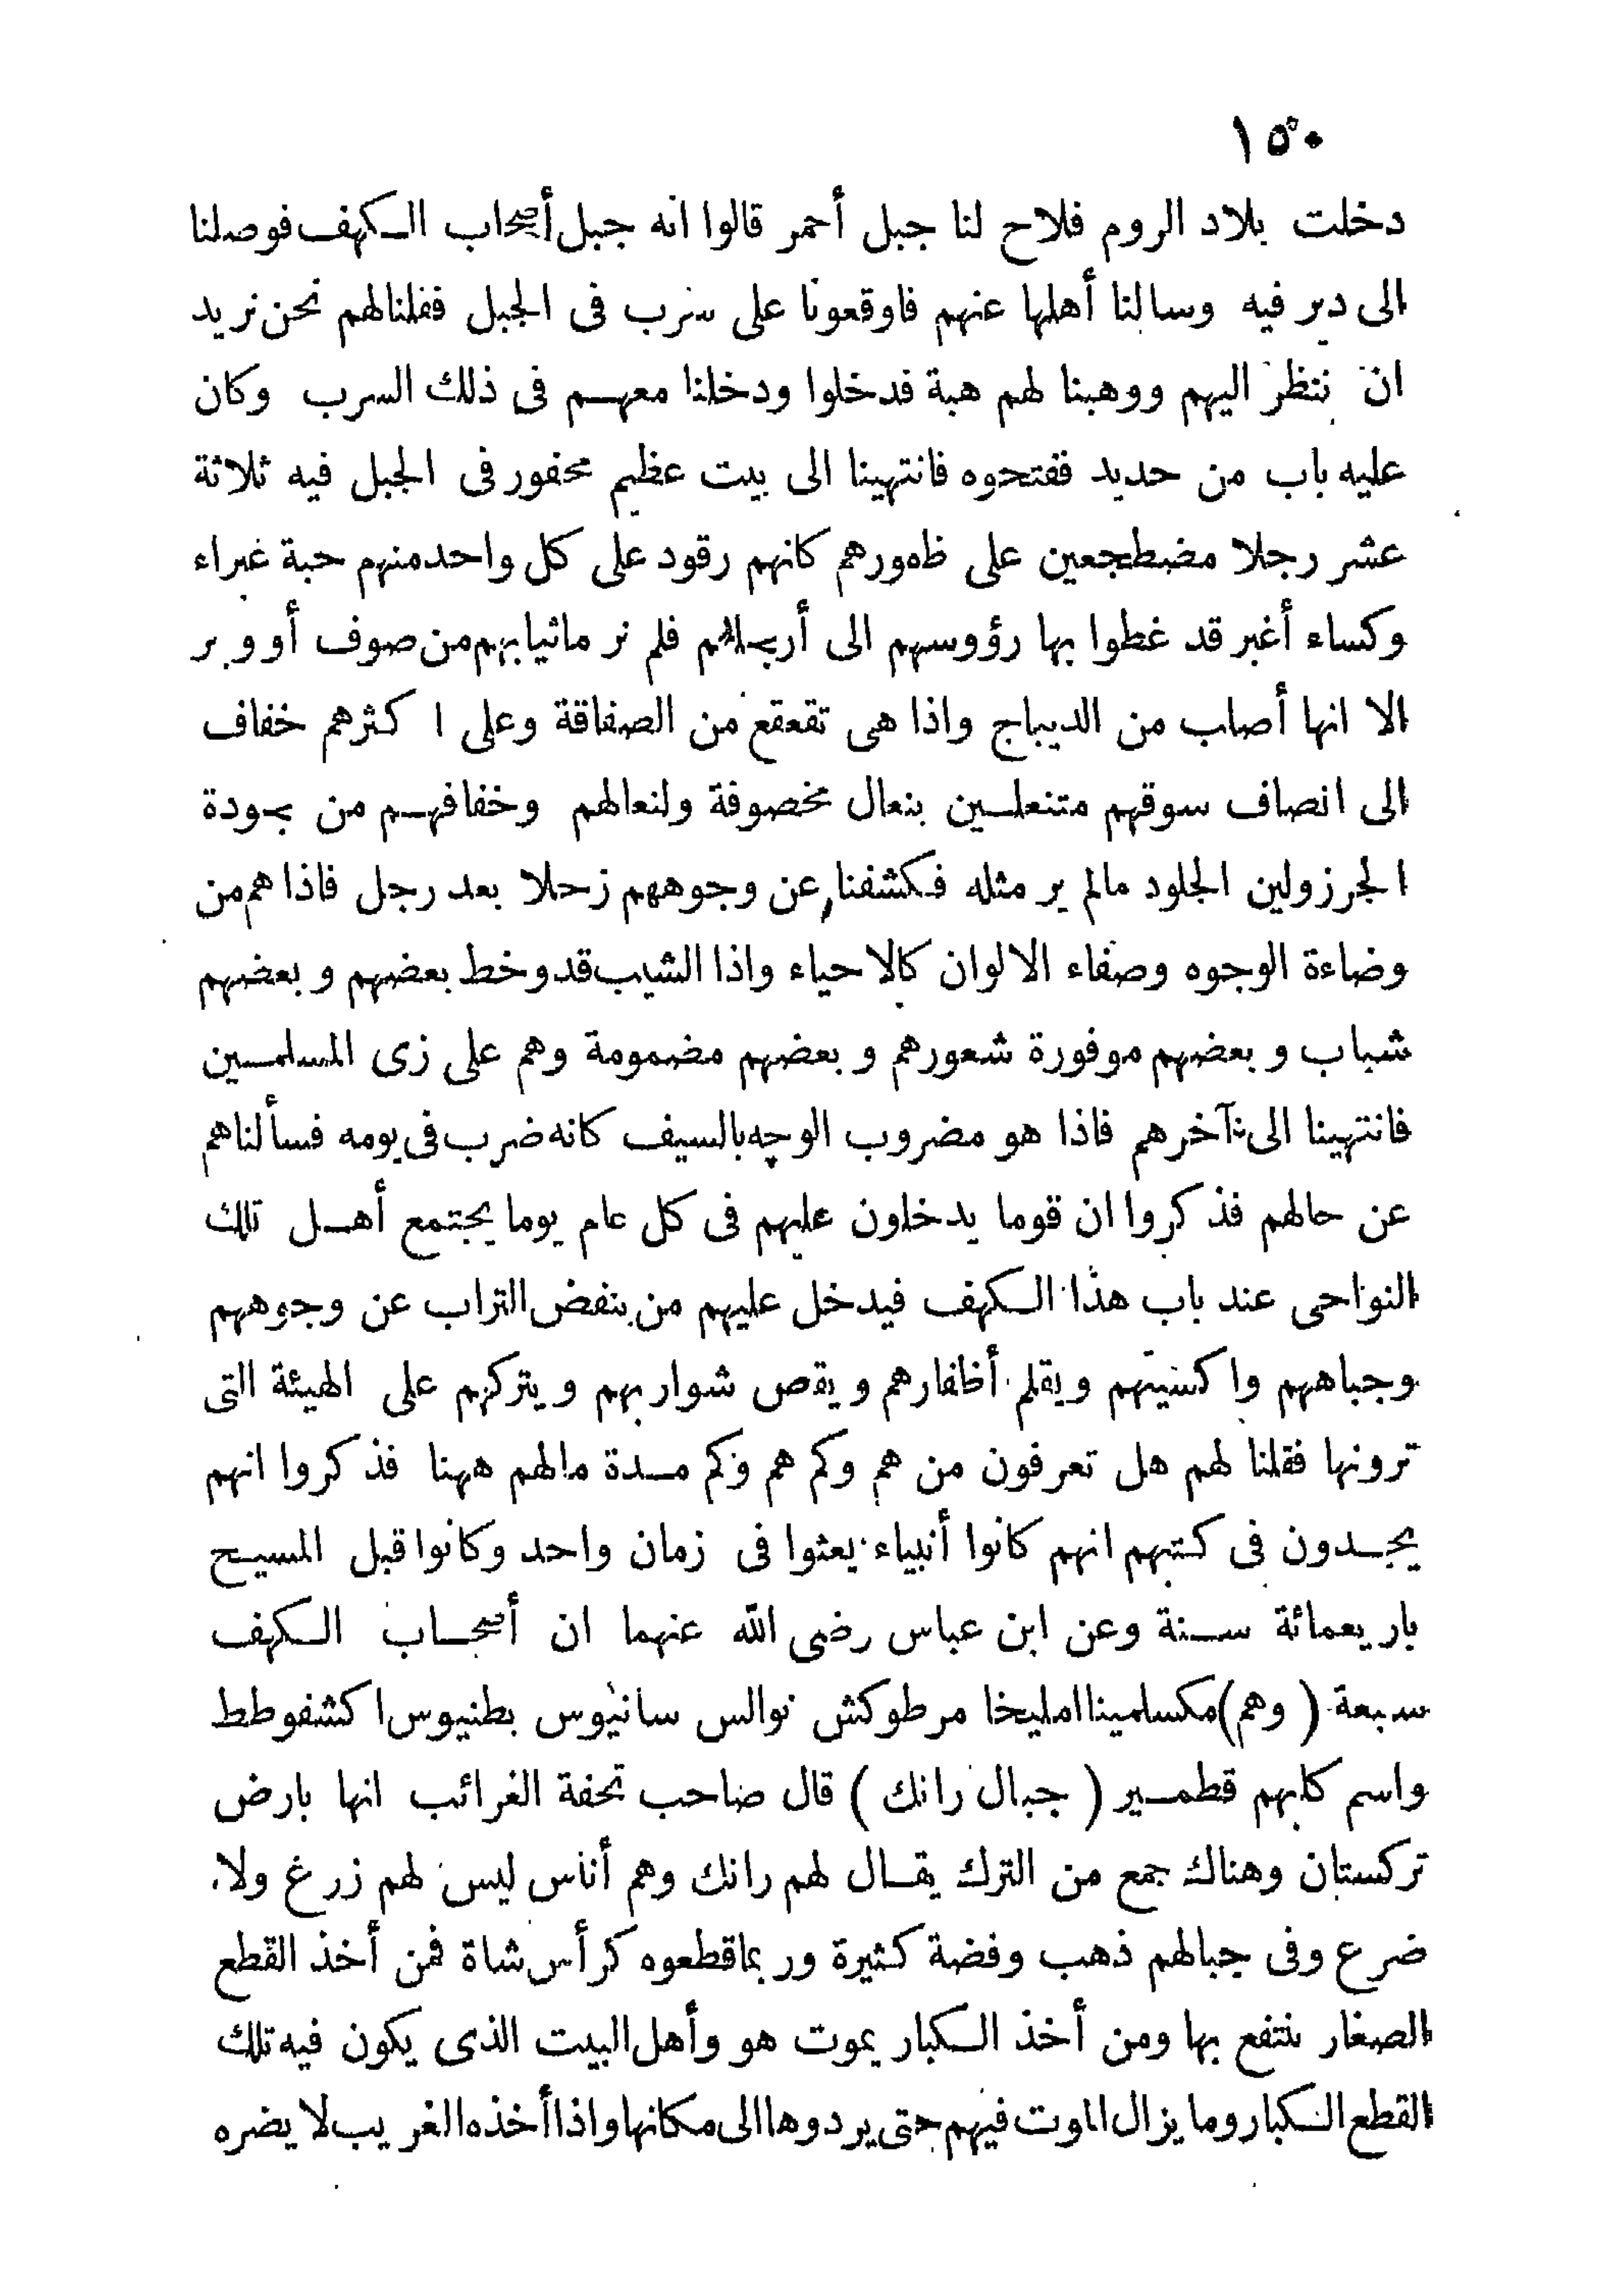 ١٥٠
دخلت بلاد الروم فلاح لنا جبل أحمر قالوا انه جبل أصحاب الكهف فوصلنا
الى دير فيه وسالنا أهلها عنهم فاوقعونا على سرب فى الجبل فقلنالهم نحن نريد
ان ننظر اليهم ووهبنا لهم هبة فدخلوا ودخلنا معهم فى ذلك السرب وكان
عليه باب من حديد ففتحوه فانتهينا الى بيت عظيم محفور فى الجبل فيه ثلاثة
عشر رجلا مضطجعين على ظهورهم كانهم رقود على كل واحد منهم جبة غبراء
وكساء أغبر قد غطوا بها رؤوسهم الى أرجلهم فلم نر ماثيابهم من صوف أو وبر
الا انها أصاب من الديباج واذا هى تقعقع من الصفاقة وعلى اكثرهم خفاف
الى انصاف سوقهم متنعلين بنعال مخصوفة ولنعالهم وخفافهم من جودة
الجرزولين الجلود مالم ير مثله فكشفنا عن وجوههم زحلا بعد رجل فاذا هم من
وضاءة الوجوه وصفاء الالوان كالاحياء واذا الشيب قد وخط بعضهم وبعضهم
شباب وبعضهم موفورة شعورهم وبعضهم مضمومة وهم على زى المسلمين
فانتهينا الى آخرهم فاذا هو مضروب الوجه بالسيف كانه ضرب فى يومه فسألناهم
عن حالهم فذكروا ان قوما يدخلون عليهم فى كل عام يوما يجتمع أهل تلك
النواحى عند باب هذا الكهف فيدخل عليهم من ينفض التراب عن وجوههم
وجباههم واكسيتهم ويقلم أظفارهم ويقص شواربهم ويتركهم على الهيئة التى
ترونها فقلنا لهم هل تعرفون من هم وكم هم وكم مدة مالهم ههنا فذكروا انهم
يجدون فى كتبهم انهم كانوا أنبياء بعثوا فى زمان واحد وكانوا قبل المسيح
باربعمائة سنة وعن ابن عباس رضى الله عنهما ان أصحاب الكهف
سبعة (وهم) مكسلمينا امليخا مرطوكش نوالس سانيوس بطنيوس اكشفوطط
واسم كلبهم قطمير (جبال رانك) قال صاحب تحفة الغرائب انها بارض
تركستان وهناك جمع من الترك يقال لهم رانك وهم أناس ليس لهم زرع ولا
ضرع وفى جبالهم ذهب وفضة كثيرة وربما قطعوه كرأس شاة فمن أخذ القطع
الصغار ينتفع بها ومن أخذ الكبار يموت هو وأهل البيت الذى يكون فيه تلك
القطع الكبار وما يزال الموت فيهم حتى يردوها الى مكانها واذا أخذه الغريب لا يضره